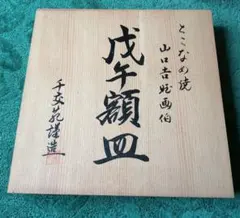 とこなめ焼
山口吉旺画伯
戊午額皿
千交苑謹造